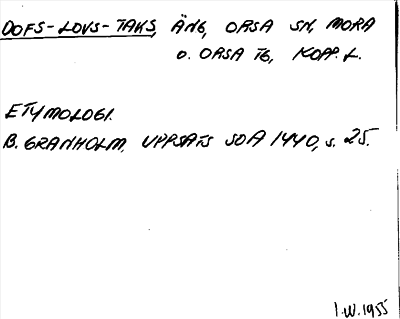 DOFS-LOVS-TAKS, ÄNG, ORSA SN, MORA
O. ORSA TG, KOPP. L.
ETYMOLOGI.
B. GRANHOLM. UPPSATS SOA 1440, s. 25.
I.W. 1955